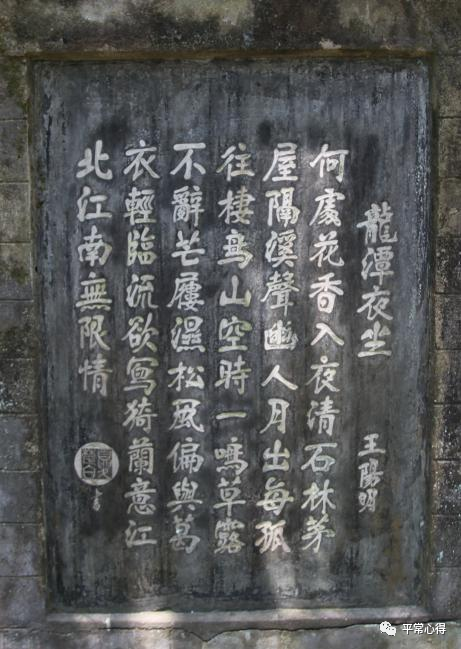 龍潭夜坐 王陽明
何處花香入夜清石林茅
屋隔溪聲幽人月出每孤
往棲鳥山空時一鳴草露
不辭芒屨濕松風偏與葛
衣輕臨流欲寫猗蘭意江
北江南無限情
書
平常心得